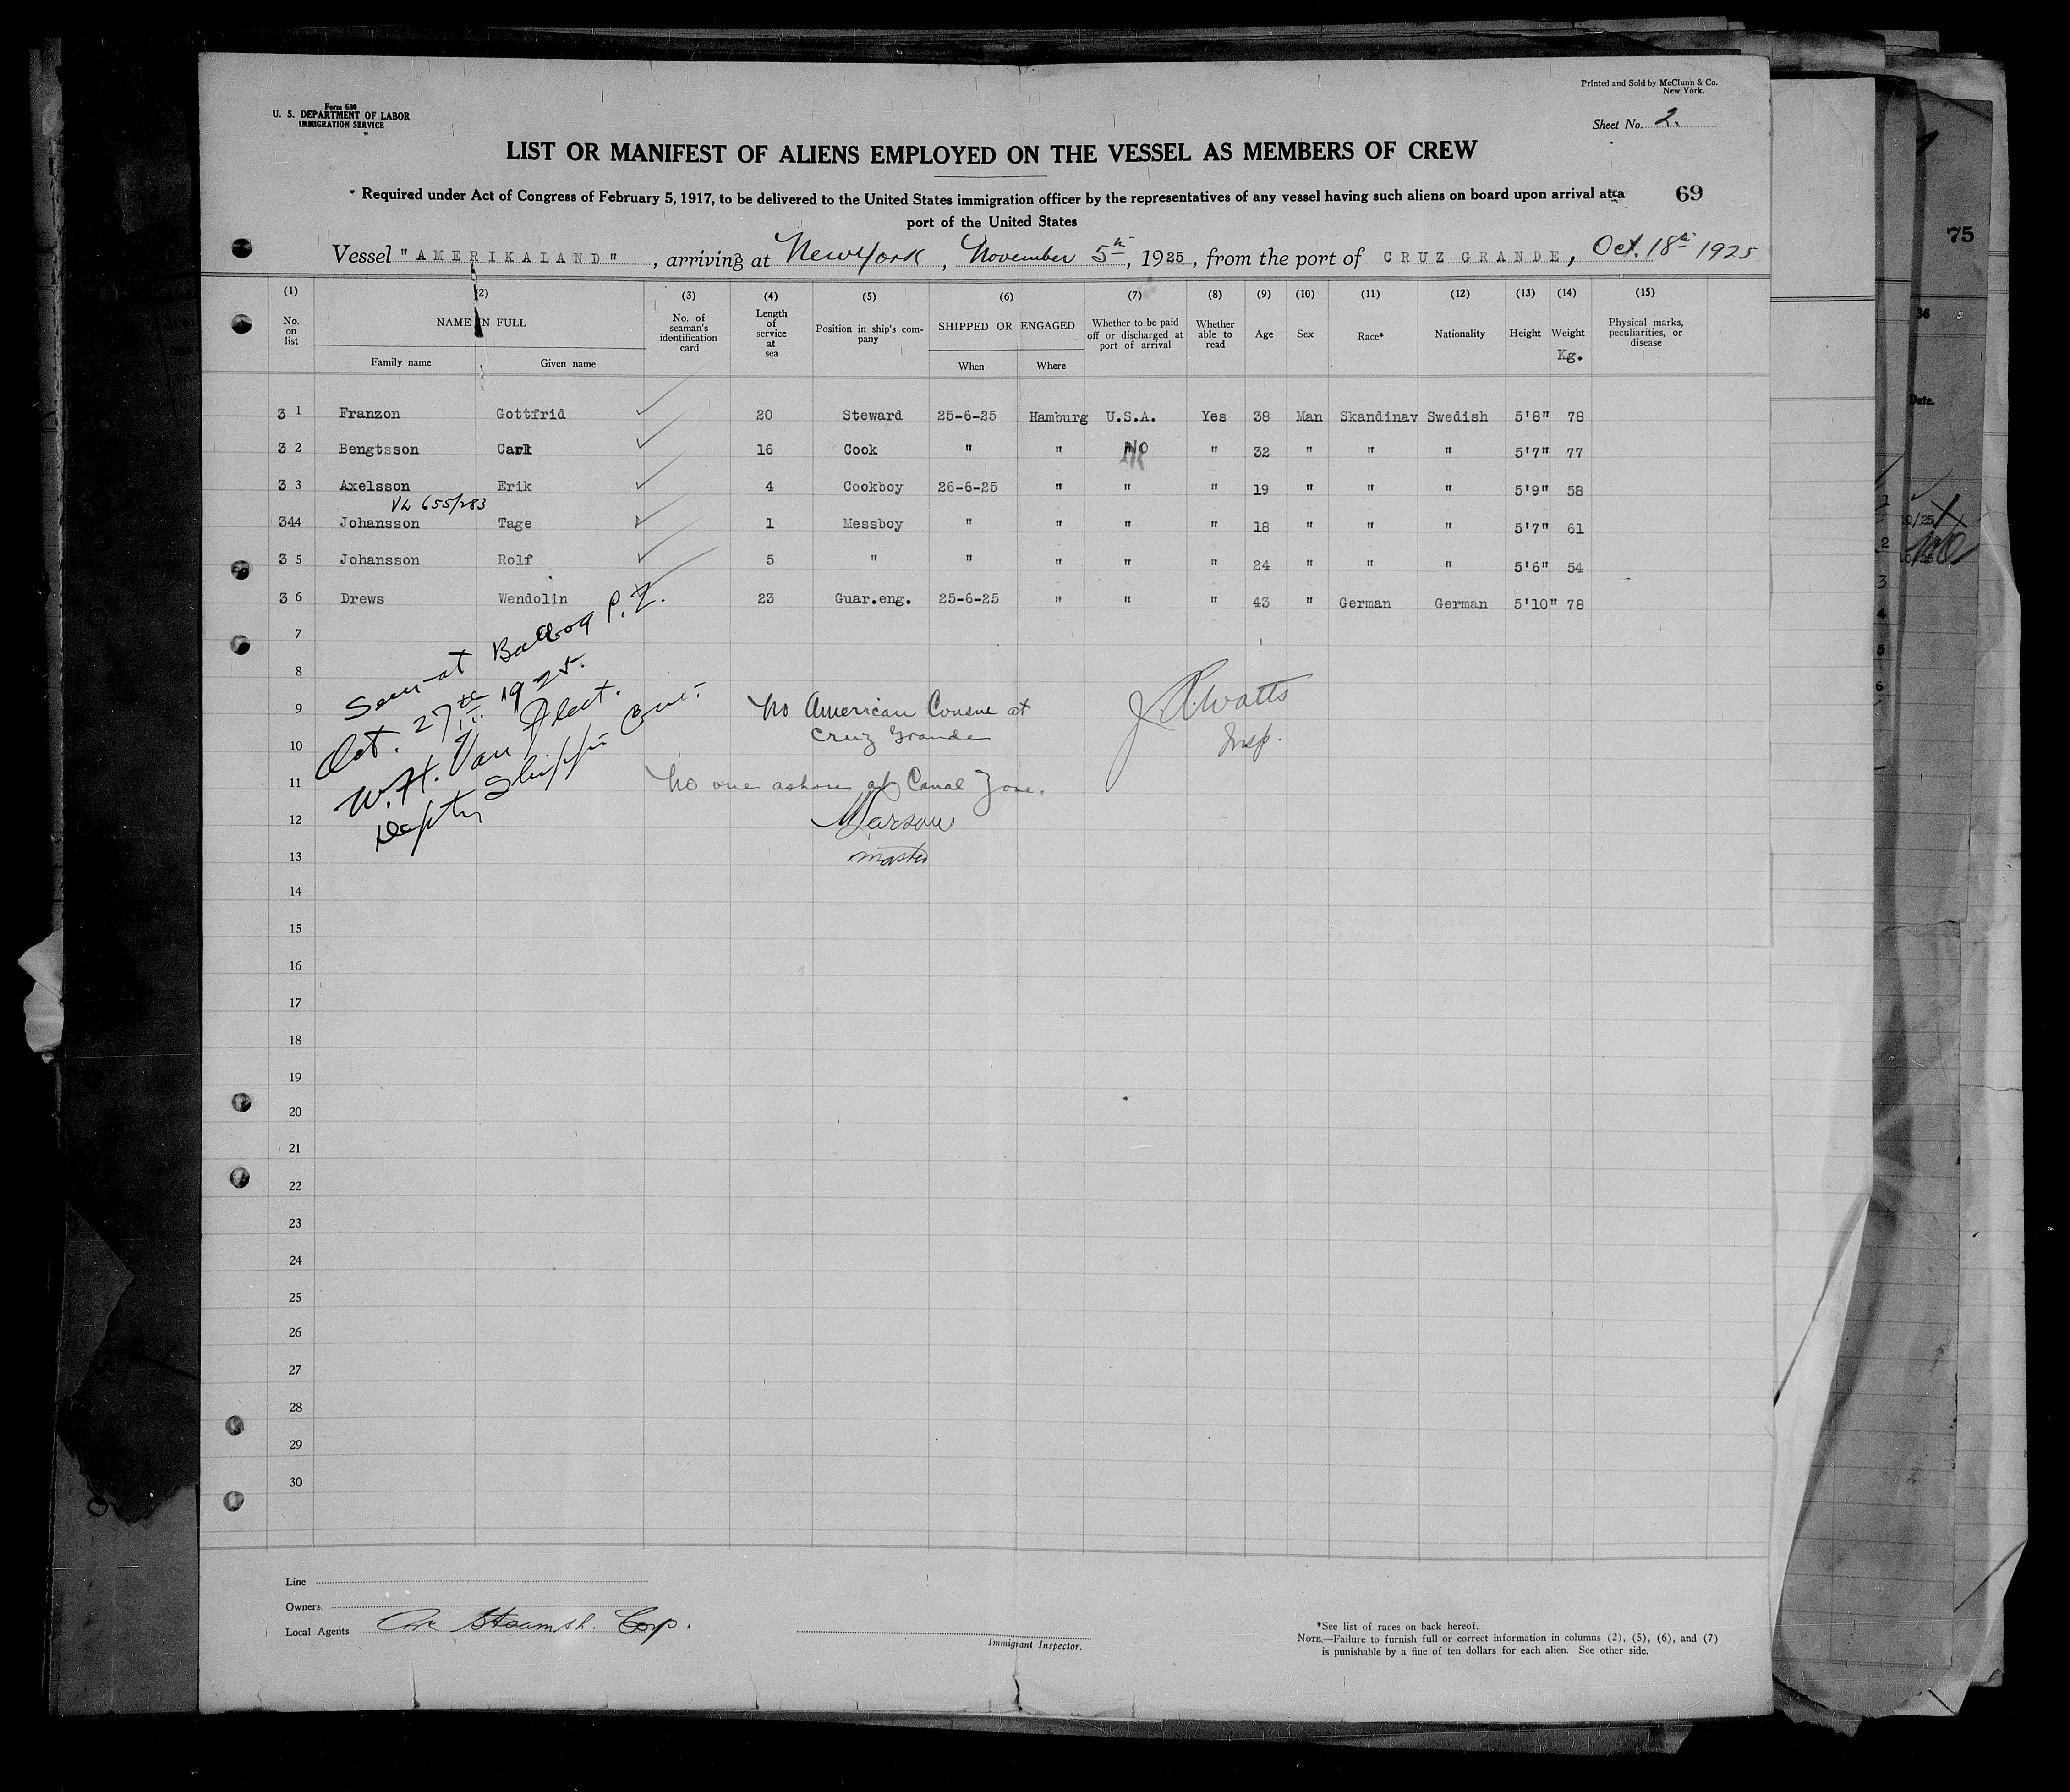 Form 680
U. S. DEPARTMENT OF LABOR
IMMIGRATION SERVICE
Printed and Sold by McClunn & Co.
New York.
Sheet No. 2.
LIST OR MANIFEST OF ALIENS EMPLOYED ON THE VESSEL AS MEMBERS OF CREW
Required under Act of Congress of February 5, 1917, to be delivered to the United States immigration officer by the representatives of any vessel having such aliens on board upon arrival at a
port of the United States
69
Vessel "AMERIKALAND", arriving at New York, November 5th, 1925, from the port of CRUZ GRANDE, Oct. 18th 1925
(1) (2) (3) (4) (5) (6) (7) (8) (9) (10) (11) (12) (13) (14) (15)
No. on list
NAME IN FULL
Family name
Given name
No. of seaman's identification card
Length of service at sea
Position in ship's company
SHIPPED OR ENGAGED
When
Where
Whether to be paid off or discharged at port of arrival
Whether able to read
Age
Sex
Race*
Nationality
Height
Weight
Kg.
Physical marks, peculiarities, or disease
3 1 Franzon Gottfrid 20 Steward 25-6-25 Hamburg U.S.A. Yes 38 Man Skandinav Swedish 5'8" 78
3 2 Bengtsson Carl 16 Cook " " No " 32 " " " 5'7" 77
3 3 Axelsson Erik 4 Cookboy 26-6-25 " " " 19 " " " 5'9" 58
VL 655/283
344 Johansson Tage 1 Messboy " " " " 18 " " " 5'7" 61
3 5 Johansson Rolf 5 " " " " " 24 " " " 5'6" 54
3 6 Drews Wendolin 23 Guar.eng. 25-6-25 " " " 43 " German German 5'10" 78
7
8
9
10
11
12
13
14
15
16
17
18
19
20
21
22
23
24
25
26
27
28
29
30
Seen at Balboa C.Z.
Oct. 27th 1925.
W.H. Van Fleet.
Deputy Shippin Com.
No American Consul at
Cruz Grande
No one ashore at Canal Zone.
Master
J. Watts
Insp.
Line
Owners
Local Agents Ore Steamsh. Corp.
Immigrant Inspector.
*See list of races on back hereof.
NOTE.—Failure to furnish full or correct information in columns (2), (5), (6), and (7)
is punishable by a fine of ten dollars for each alien. See other side.
75
36
Date.
1
2
3
4
5
6